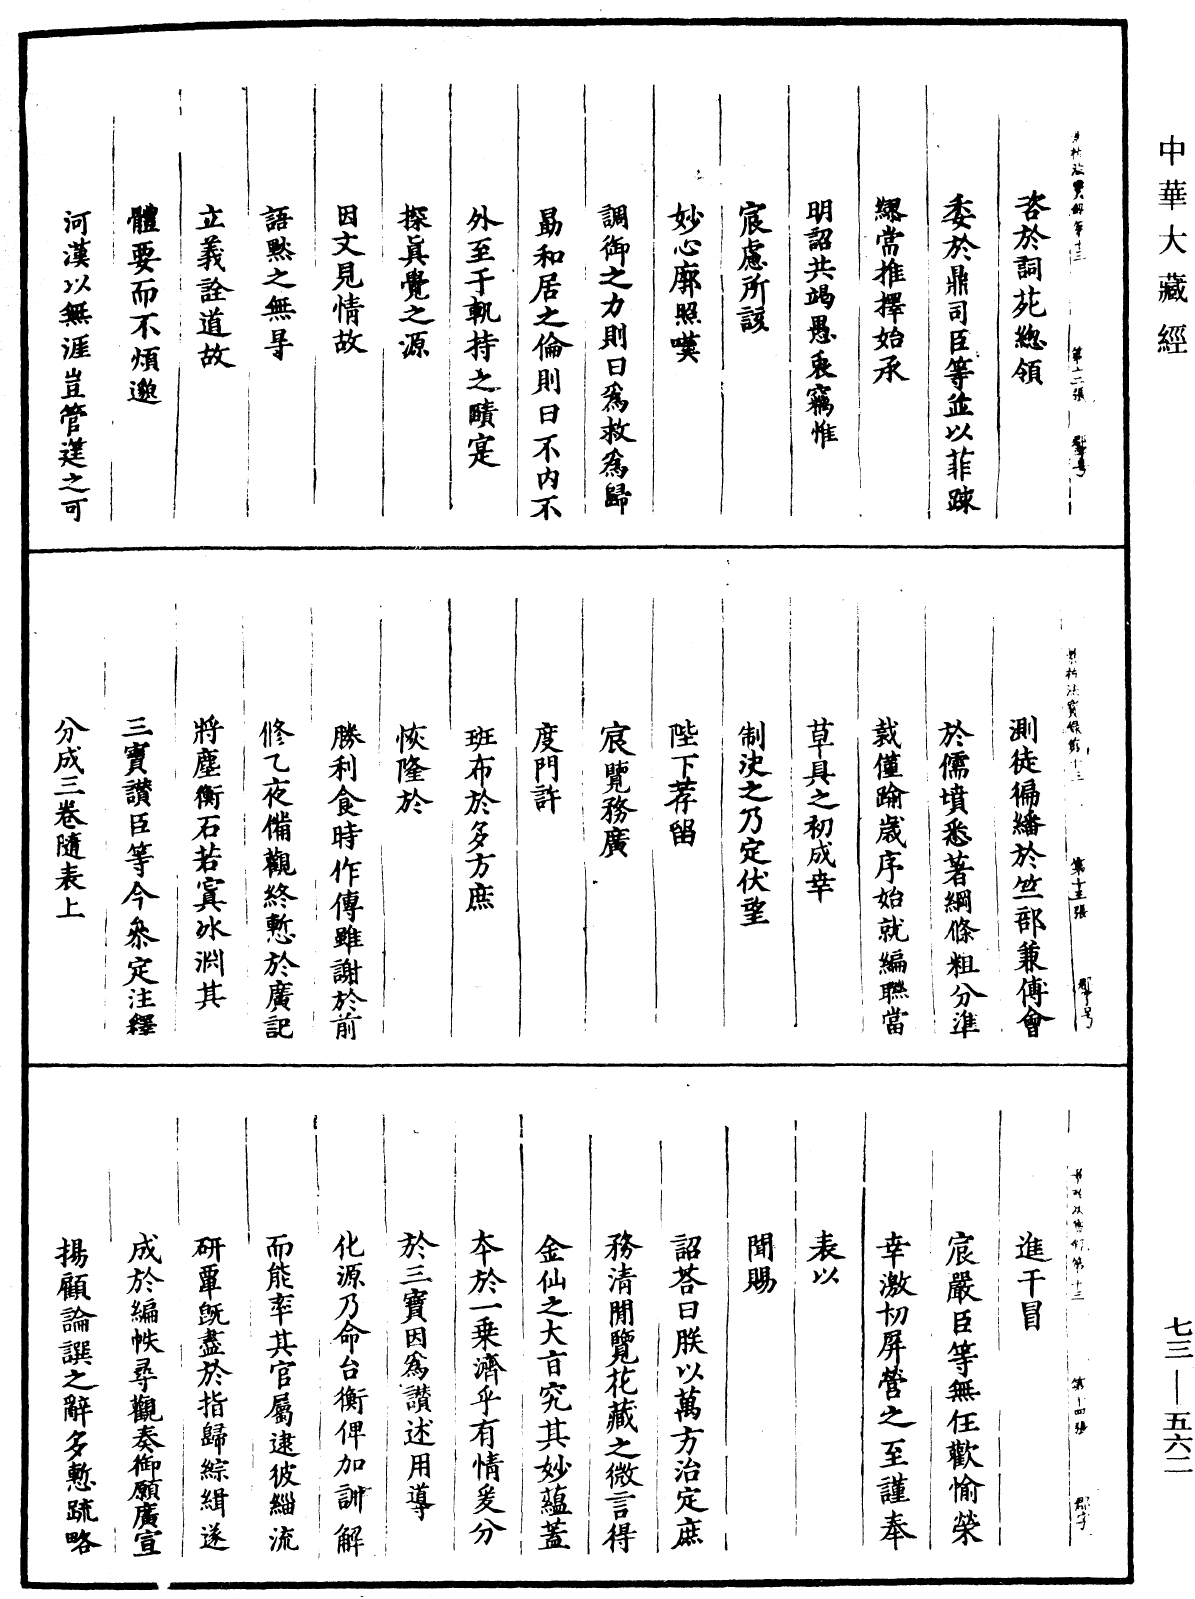 中華大藏經
咨於詞苑總領
委於鼎司臣等並以菲踈
緦當推擇始承
明詔共竭愚衷竊惟
宸慮所該
妙心廓照嘆
調御之力則曰爲救爲歸
勗和居之倫則曰不内不
外至于軌持之賾寔
探眞覺之源
因文見情故
語默之無㝵
立義詮道故
體要而不煩邈
河漢以無涯豈管莛之可
第十三張
測徒徧繙於竺部兼傅會
於儒墳悉著綱條粗分準
裁僅踰歲序始就編聯當
草具之初成幸
制决之乃定伏望
陛下荐留
宸覽務廣
度門許
班布於多方庶
恢隆於
勝利食時作傳雖謝於前
修乙夜備觀終慙於廣記
將塵衡石若寘冰淵其
三寶讚臣等今叅定注釋
分成三卷隨表上
第十四張
進干冒
宸嚴臣等無任歡愉榮
幸激切屏營之至謹奉
表以
聞賜
詔荅曰朕以萬方治定庶
務清閒覽花藏之微言得
金仙之大㫖究其妙蘊蓋
夲於一乗濟乎有情爰分
於三寶因爲讃述用導
化源乃命台衡俾加訓解
而能率其官屬逮彼緇流
研覃旣盡於指歸綜緝遂
成於編帙尋觀奏御願廣宣
揚顧論譔之辭多慙疏略
七三—五六二